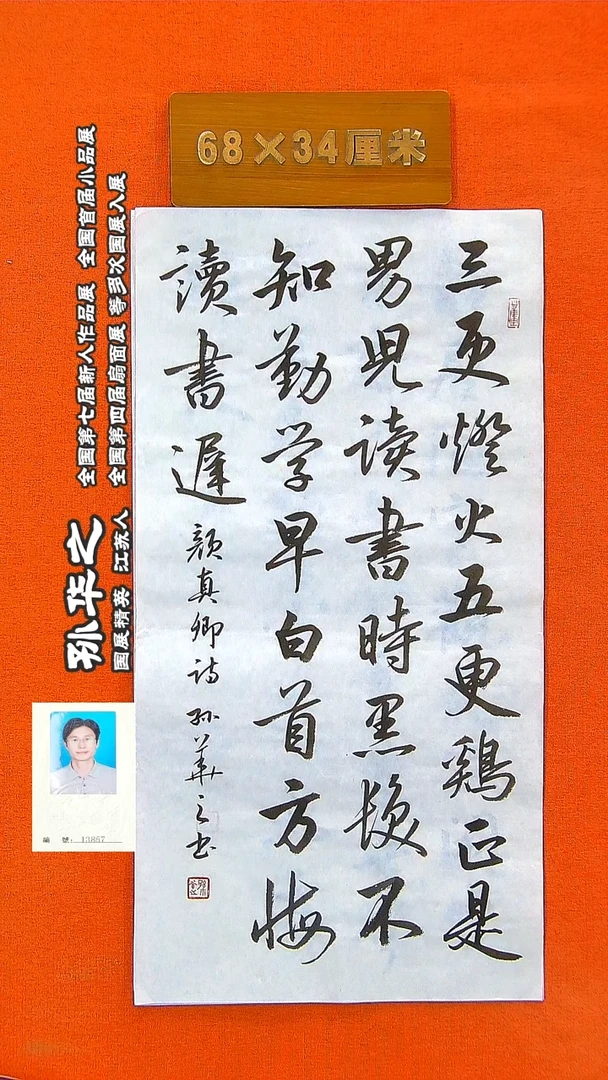 68×34厘米
三更燈火五更鷄正是
男児读書時黑髮不
知勤学早白首方悔
讀書遲
顔真卿诗 孙華之书
孙华之
国展精英 江苏人
全国第七届新人作品展 全国首届小品展
全国第四届扇面展 等多次国展入展
編 號: 13857